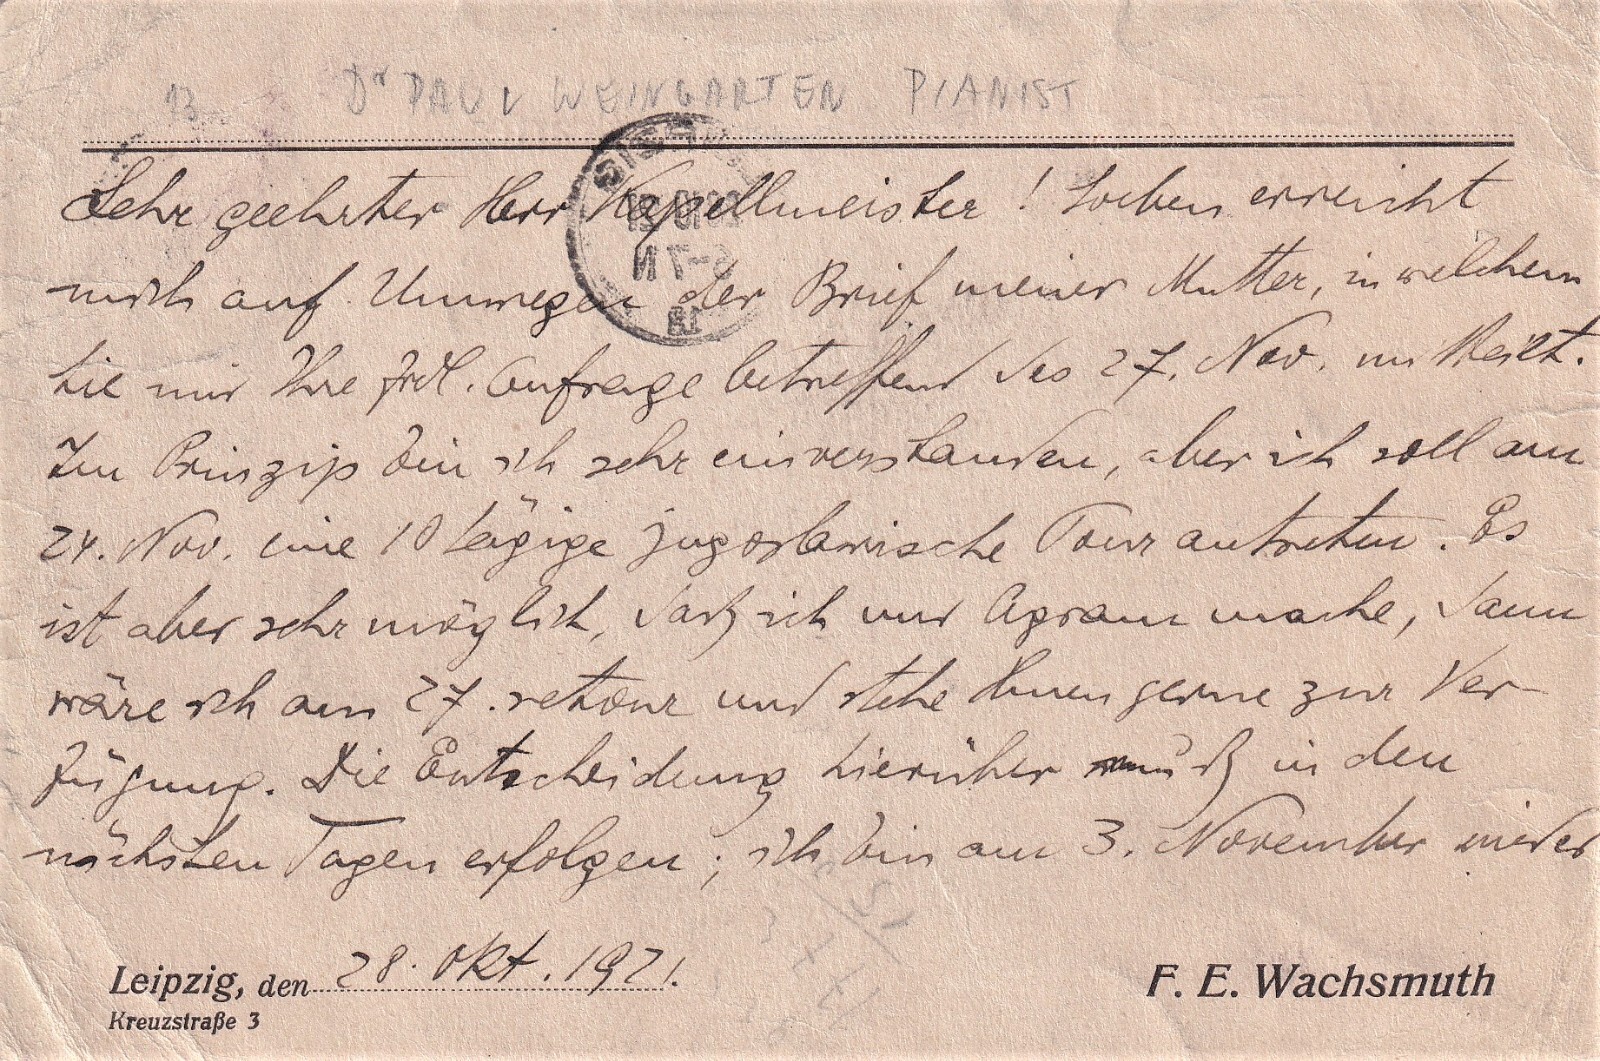 13 Dr PAUL WEINGARTEN PIANIST
Sehr geehrter Herr Kapellmeister! Soeben erreicht
mich auf Umwegen der Brief meiner Mutter, in welchem
sie mir Ihre frdl. Anfrage betreffend des 27. Nov. mitteilt.
Im Prinzip bin ich sehr einverstanden, aber ich soll am
24. Nov. eine 10 tägige jugoslawische Tour antreten. Es
ist aber sehr möglich, daß ich nur Agram mache, dann
wäre ich am 27. retour und stehe Ihnen gerne zur Ver-
fügung. Die Entscheidung hierüber muß in den
nächsten Tagen erfolgen; ich bin am 3. November wieder
Leipzig, den 28. Okt. 1921.
Kreuzstraße 3
F. E. Wachsmuth